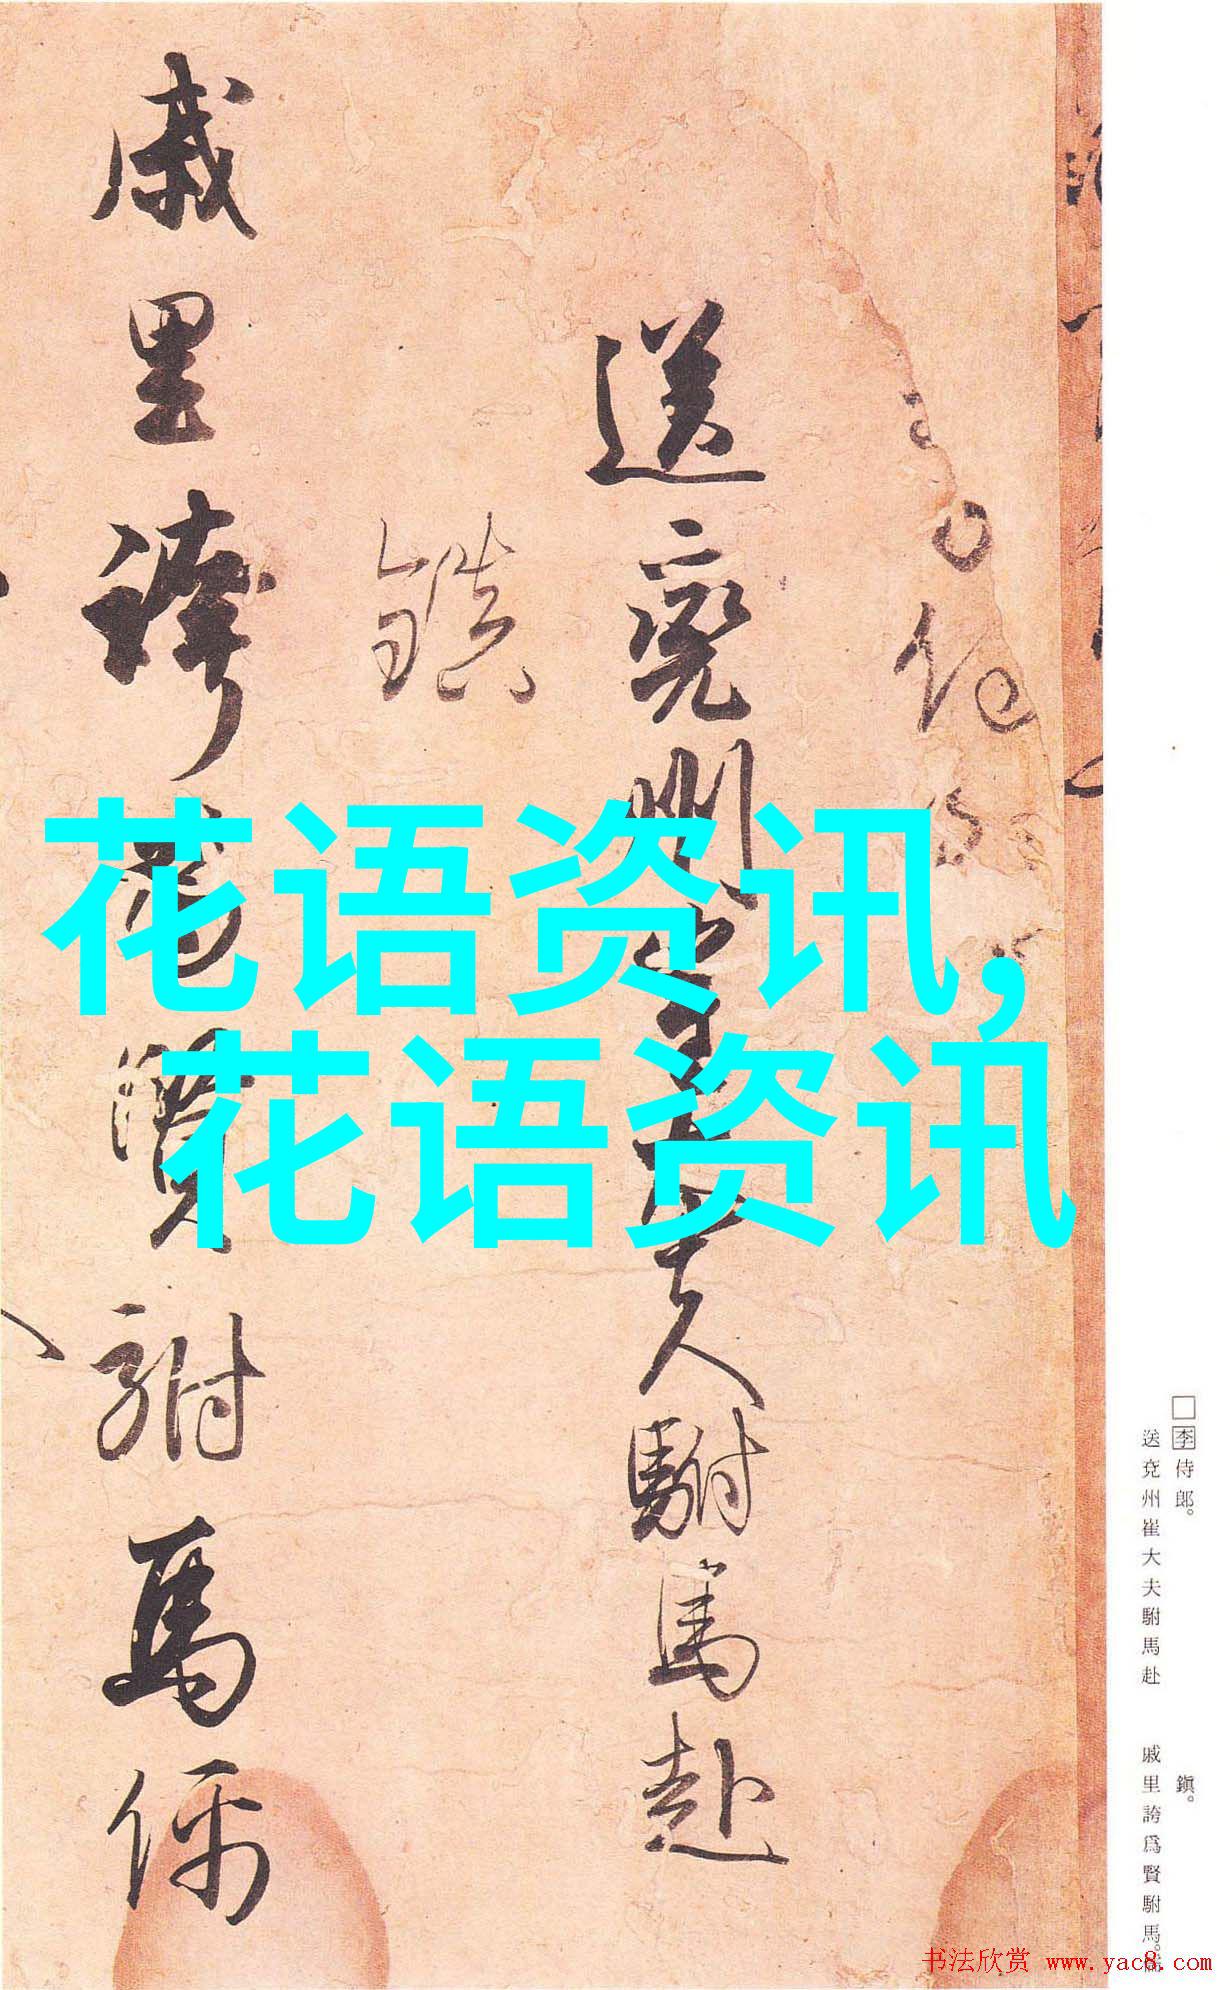 李侍郎
送兗州崔大夫駙馬赴
鎮
戚里誇爲賢駙馬儒
花语资讯,
花语资讯
□李侍郎。
送兗州崔大夫駙馬赴
鎮。
戚里誇爲賢駙馬。
书法欣赏 www.yac8.com